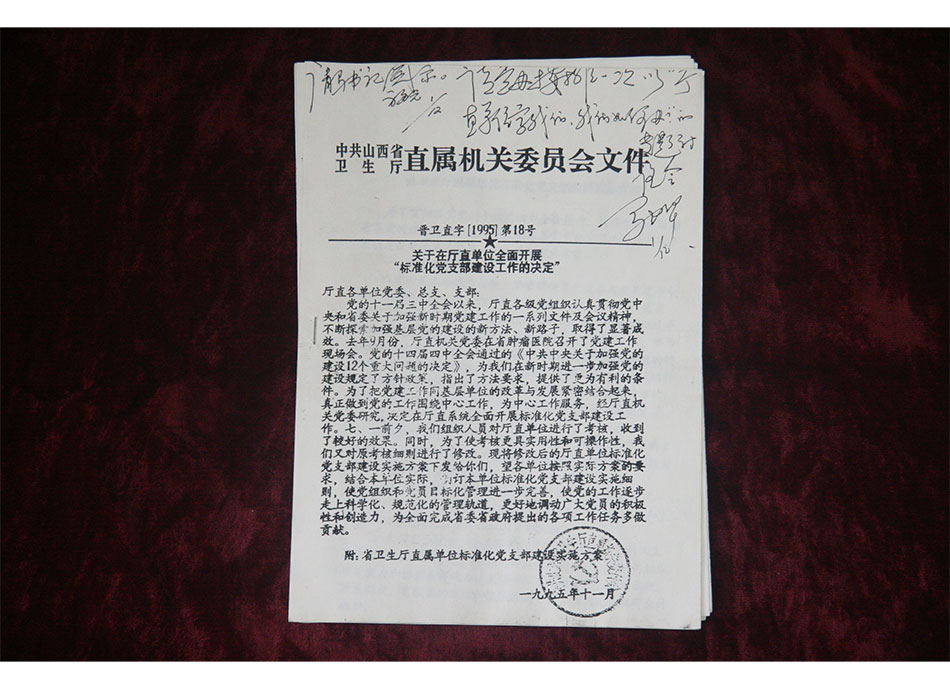 中共山西省
卫生厅
直属机关委员会文件
晋卫直字[1995]第18号
关于在厅直单位全面开展
“标准化党支部建设工作的决定”
厅直各单位党委、总支、支部:
党的十一届三中全会以来，厅直各级党组织认真贯彻党中
央和省委关于加强新时期党建工作的一系列文件及会议精神，
不断探索加强基层党的建设的新方法、新路子，取得了显著成
效。去年9月份，厅直机关党委在省肿瘤医院召开了党建工作
现场会。党的十四届四中全会通过的《中共中央关于加强党的
建设12个重大问题的决定》，为我们在新时期进一步加强党的
建设规定了方针政策，指出了方法要求，提供了更为有利的条
件。为了把党建工作同基层单位的改革与发展紧密结合起来，
真正做到党的工作围绕中心工作，为中心工作服务，经厅直机
关党委研究,决定在厅直系统全面开展标准化党支部建设工
作。七、一前夕，我们组织人员对厅直单位进行了考核，收到
了较好的效果。同时，为了使考核更具实用性和可操作性，我
们又对原考核细则进行了修改。现将修改后的厅直单位标准化
党支部建设实施方案下发给你们，望各单位按照实际方案的要
求，结合本单位实际，制订本单位标准化党支部建设实施细
则，使党组织和党员目标化管理进一步完善，使党的工作逐步
走上科学化、规范化的管理轨道，更好地调动广大党员的积极
性和创造力，为全面完成省委省政府提出的各项工作任务多做
贡献。
附:省卫生厅直属单位标准化党支部建设实施方案
一九九五年十一月